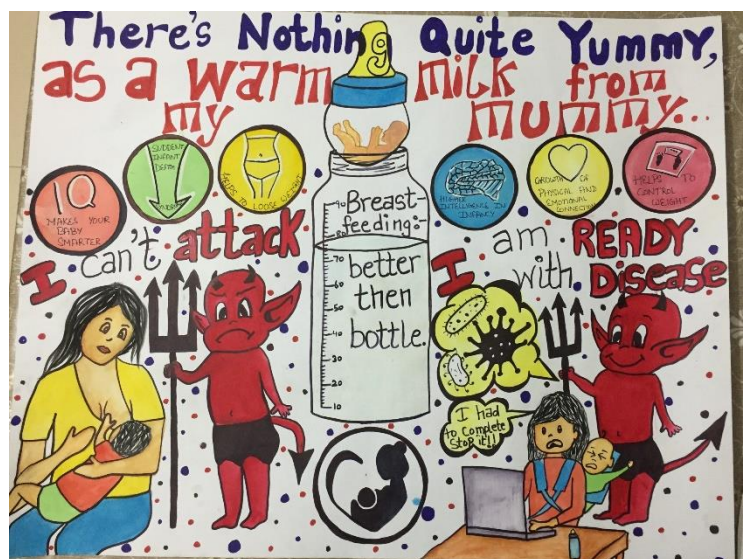 There's Nothing Quite Yummy,
as a warm milk from
my mummy...
IQ
MAKES YOUR
BABY
SMARTER
SUDDENT
INFANT
DEATH
HELPS TO LOOSE WEIGHT
HIGHER
INTELLIGENCE IN
INFANCY
GROWTH OF
PHYSICAL AND
EMOTIONAL
HELPS TO
CONTROL
WEIGHT
I can't attack
Breast-
feeding:-
better
then
bottle.
90
80
70
60
50
40
30
20
10
I am READY
with Disease
I had
to complete
stop it!!